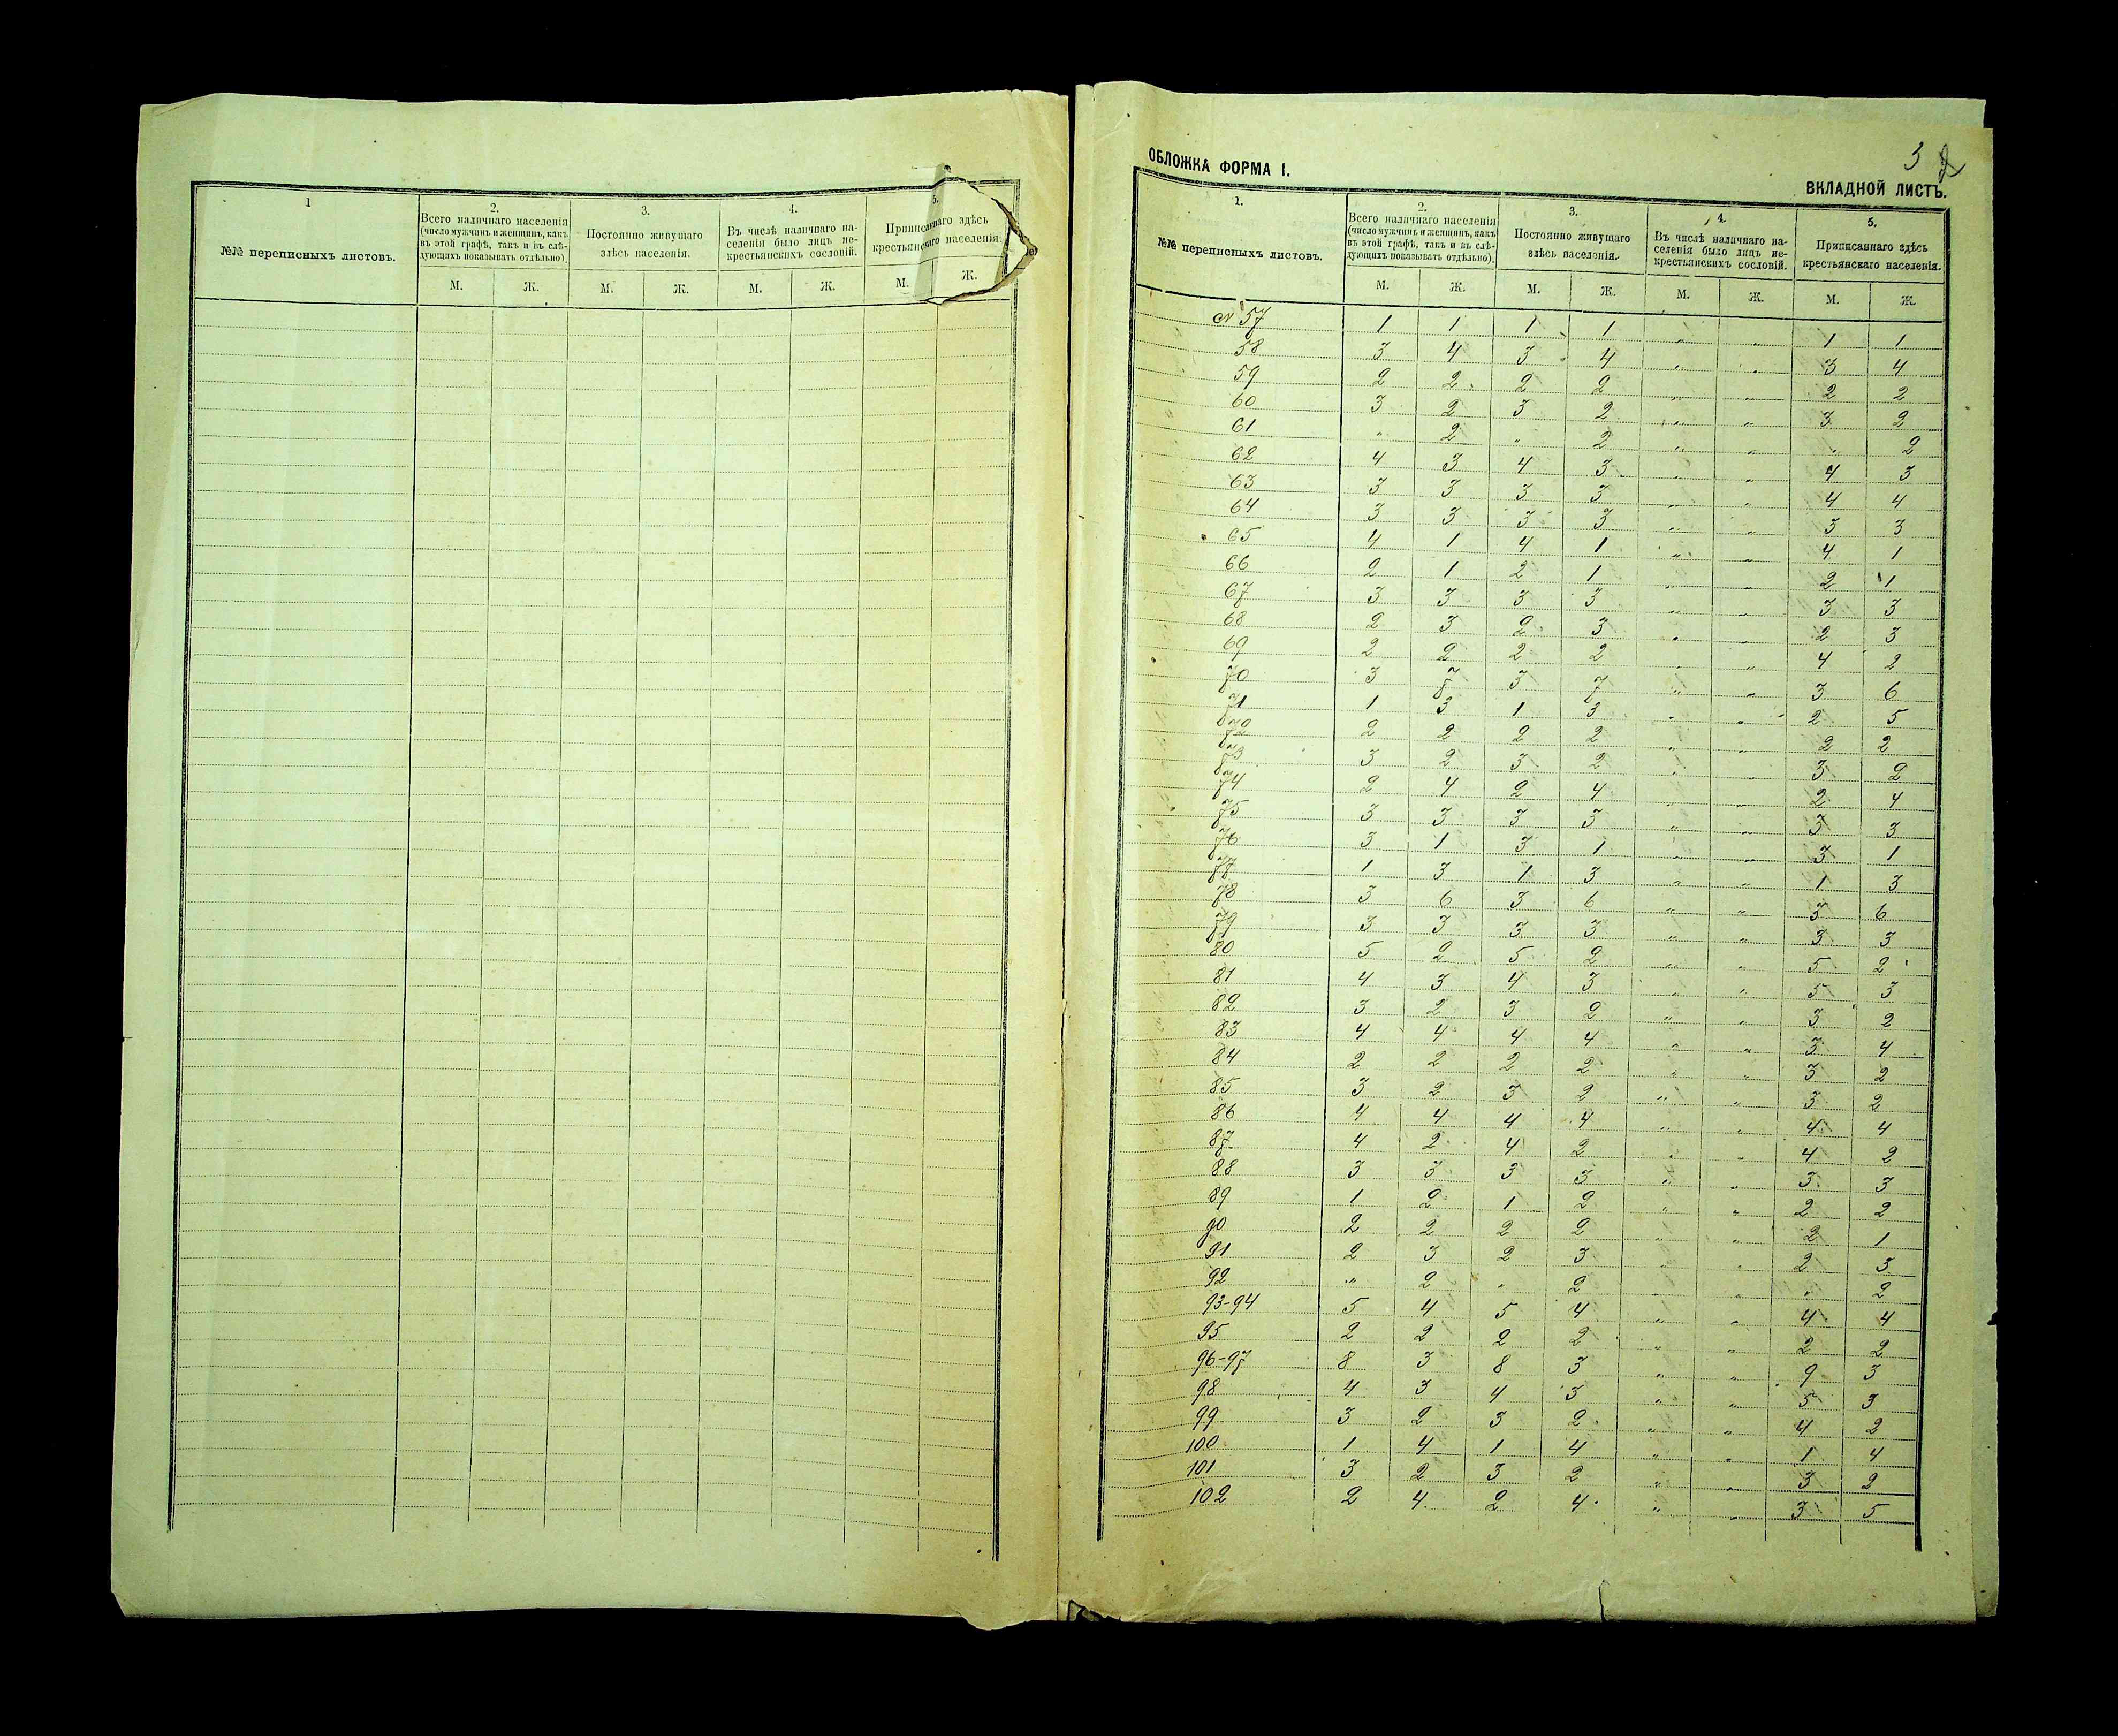 1
2.
3.
4.
5.
№№ переписныхъ листовъ.
Всего наличнаго населенія
(число мужчинъ и женщинъ, какъ
въ этой графѣ, такъ и въ слѣ-
дующихъ показывать отдѣльно).
Постоянно живущаго
здѣсь населенія.
Въ числѣ наличнаго на-
селенія было лицъ не-
крестьянскихъ сословій.
Приписаннаго здѣсь
крестьянскаго населенія.
М. Ж. М. Ж. М. Ж. М. Ж.
3
ОБЛОЖКА ФОРМА I.
ВКЛАДНОЙ ЛИСТЪ.
1.
2.
3.
4.
5.
№№ переписныхъ листовъ.
Всего наличнаго населенія
(число мужчинъ и женщинъ, какъ
въ этой графѣ, такъ и въ слѣ-
дующихъ показывать отдѣльно).
Постоянно живущаго
здѣсь населенія.
Въ числѣ наличнаго на-
селенія было лицъ не-
крестьянскихъ сословій.
Приписаннаго здѣсь
крестьянскаго населенія.
М. Ж. М. Ж. М. Ж. М. Ж.
№ 57 1 1 1 1 " " 1 1
58 3 4 3 4 " " 3 4
59 2 2 2 2 " " 2 2
60 3 2 3 2 " " 3 2
61 " 2 " 2 " " " 2
62 4 3 4 3 " " 4 3
63 3 3 3 3 " " 4 4
64 3 3 3 3 " " 3 3
65 4 1 4 1 " " 4 1
66 2 1 2 1 " " 2 1
67 3 3 3 3 " " 3 3
68 2 3 2 3 " " 2 3
69 2 2 2 2 " " 4 2
70 3 7 3 7 " " 3 6
71 1 3 1 3 " " 2 5
72 2 2 2 2 " " 2 2
73 3 2 3 2 " " 3 2
74 2 4 2 4 " " 2 4
75 3 3 3 3 " " 3 3
76 3 1 3 1 " " 3 1
77 1 3 1 3 " " 1 3
78 3 6 3 6 " " 3 6
79 3 3 3 3 " " 3 3
80 5 2 5 2 " " 5 2
81 4 3 4 3 " " 5 3
82 3 2 3 2 " " 3 2
83 4 4 4 4 " " 3 4
84 2 2 2 2 " " 3 2
85 3 2 3 2 " " 3 2
86 4 4 4 4 " " 4 4
87 4 2 4 2 " " 4 2
88 3 3 3 3 " " 3 3
89 1 2 1 2 " " 2 2
90 2 2 2 2 " " 2 1
91 2 3 2 3 " " 2 3
92 " 2 " 2 " " " 2
93-94 5 4 5 4 " " 4 4
95 2 2 2 2 " " 2 2
96-97 8 3 8 3 " " 9 3
98 4 3 4 3 " " 5 3
99 3 2 3 2 " " 4 2
100 1 4 1 4 " " 1 4
101 3 2 3 2 " " 3 2
102 2 4 2 4 " " 3 5